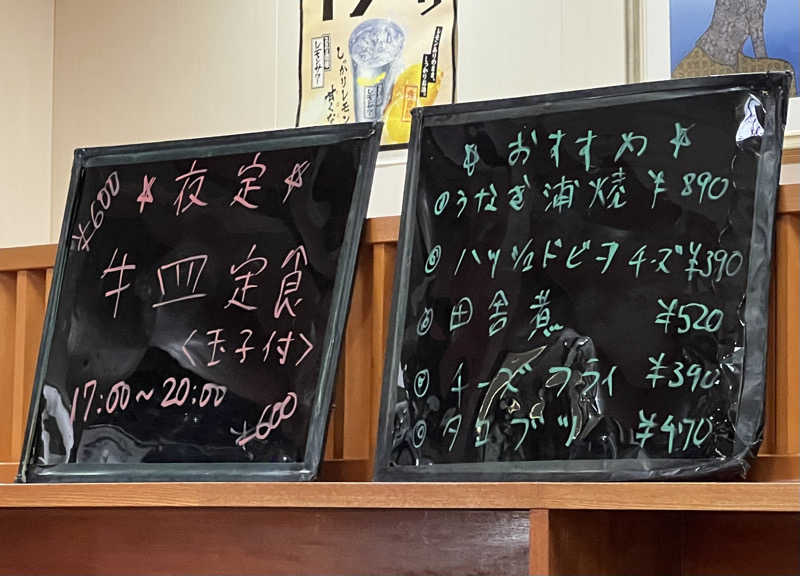 ¥600
☆ 夜定 ☆
牛皿定食
〈玉子付〉
17:00〜20:00
¥600
☆ おすすめ ☆
うなぎ浦焼 ¥890
ハッシュドビーフチーズ ¥390
田舎煮 ¥520
チーズフライ ¥390
タコブツ ¥470
しっかりレモン
レモンサワー